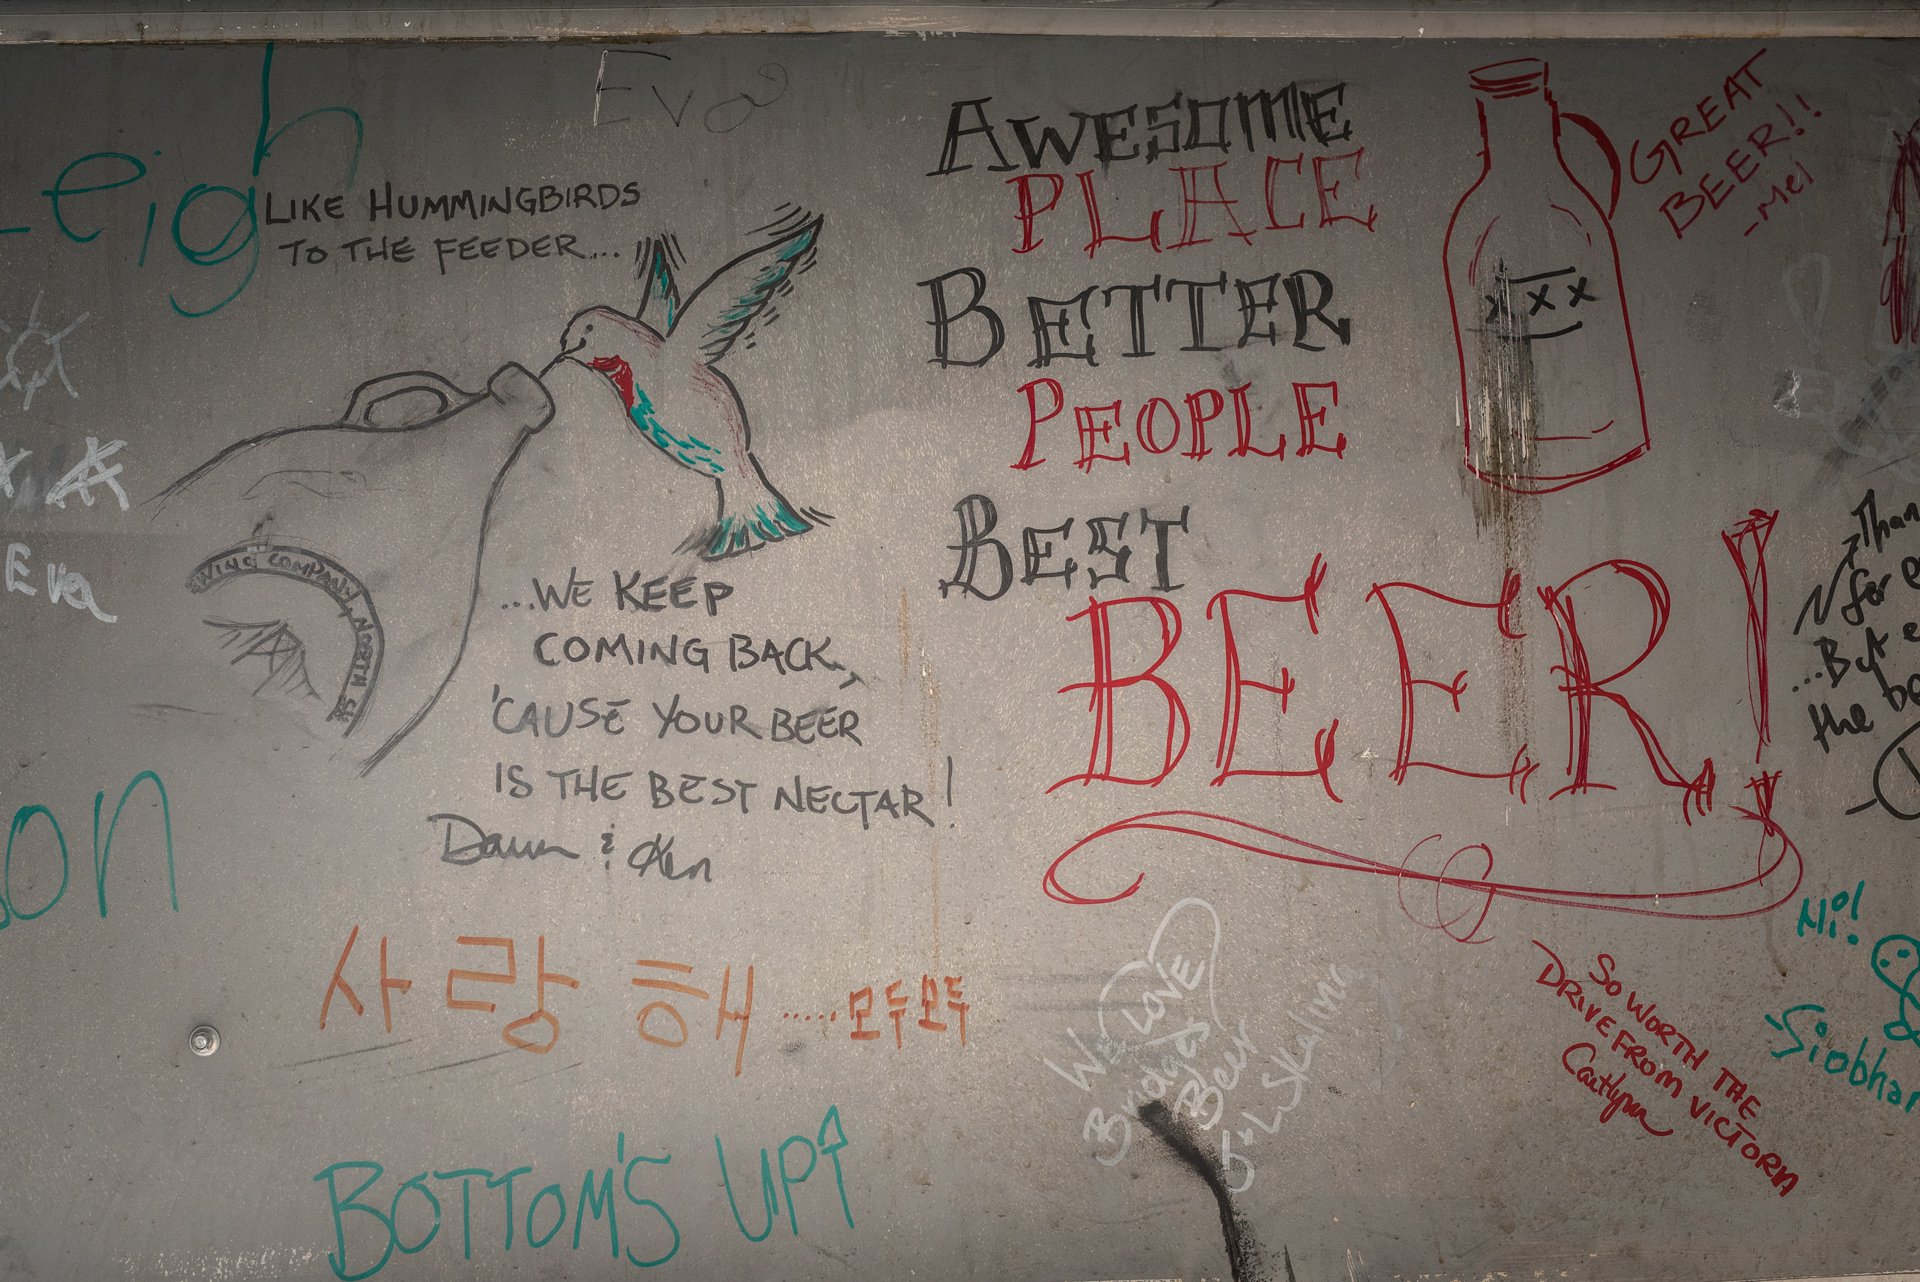 Leigh
Eva
LIKE HUMMINGBIRDS
TO THE FEEDER...
Eva
WING COMPANY, NORTH SH
...WE KEEP
COMING BACK,
'CAUSE YOUR BEER
IS THE BEST NECTAR!
Dawn & Ken
on
사랑해.....모두모두
BOTTOM'S UP
AWESOME
PLACE
BETTER
PEOPLE
BEST
BEER!
XXX
GREAT
BEER!!
-Mel
Than
for e
...But e
the be
We LOVE
Bridges
Beer
Hi!
-Siobhan
SO WORTH THE
DRIVE FROM VICTORIA
Caitlynn